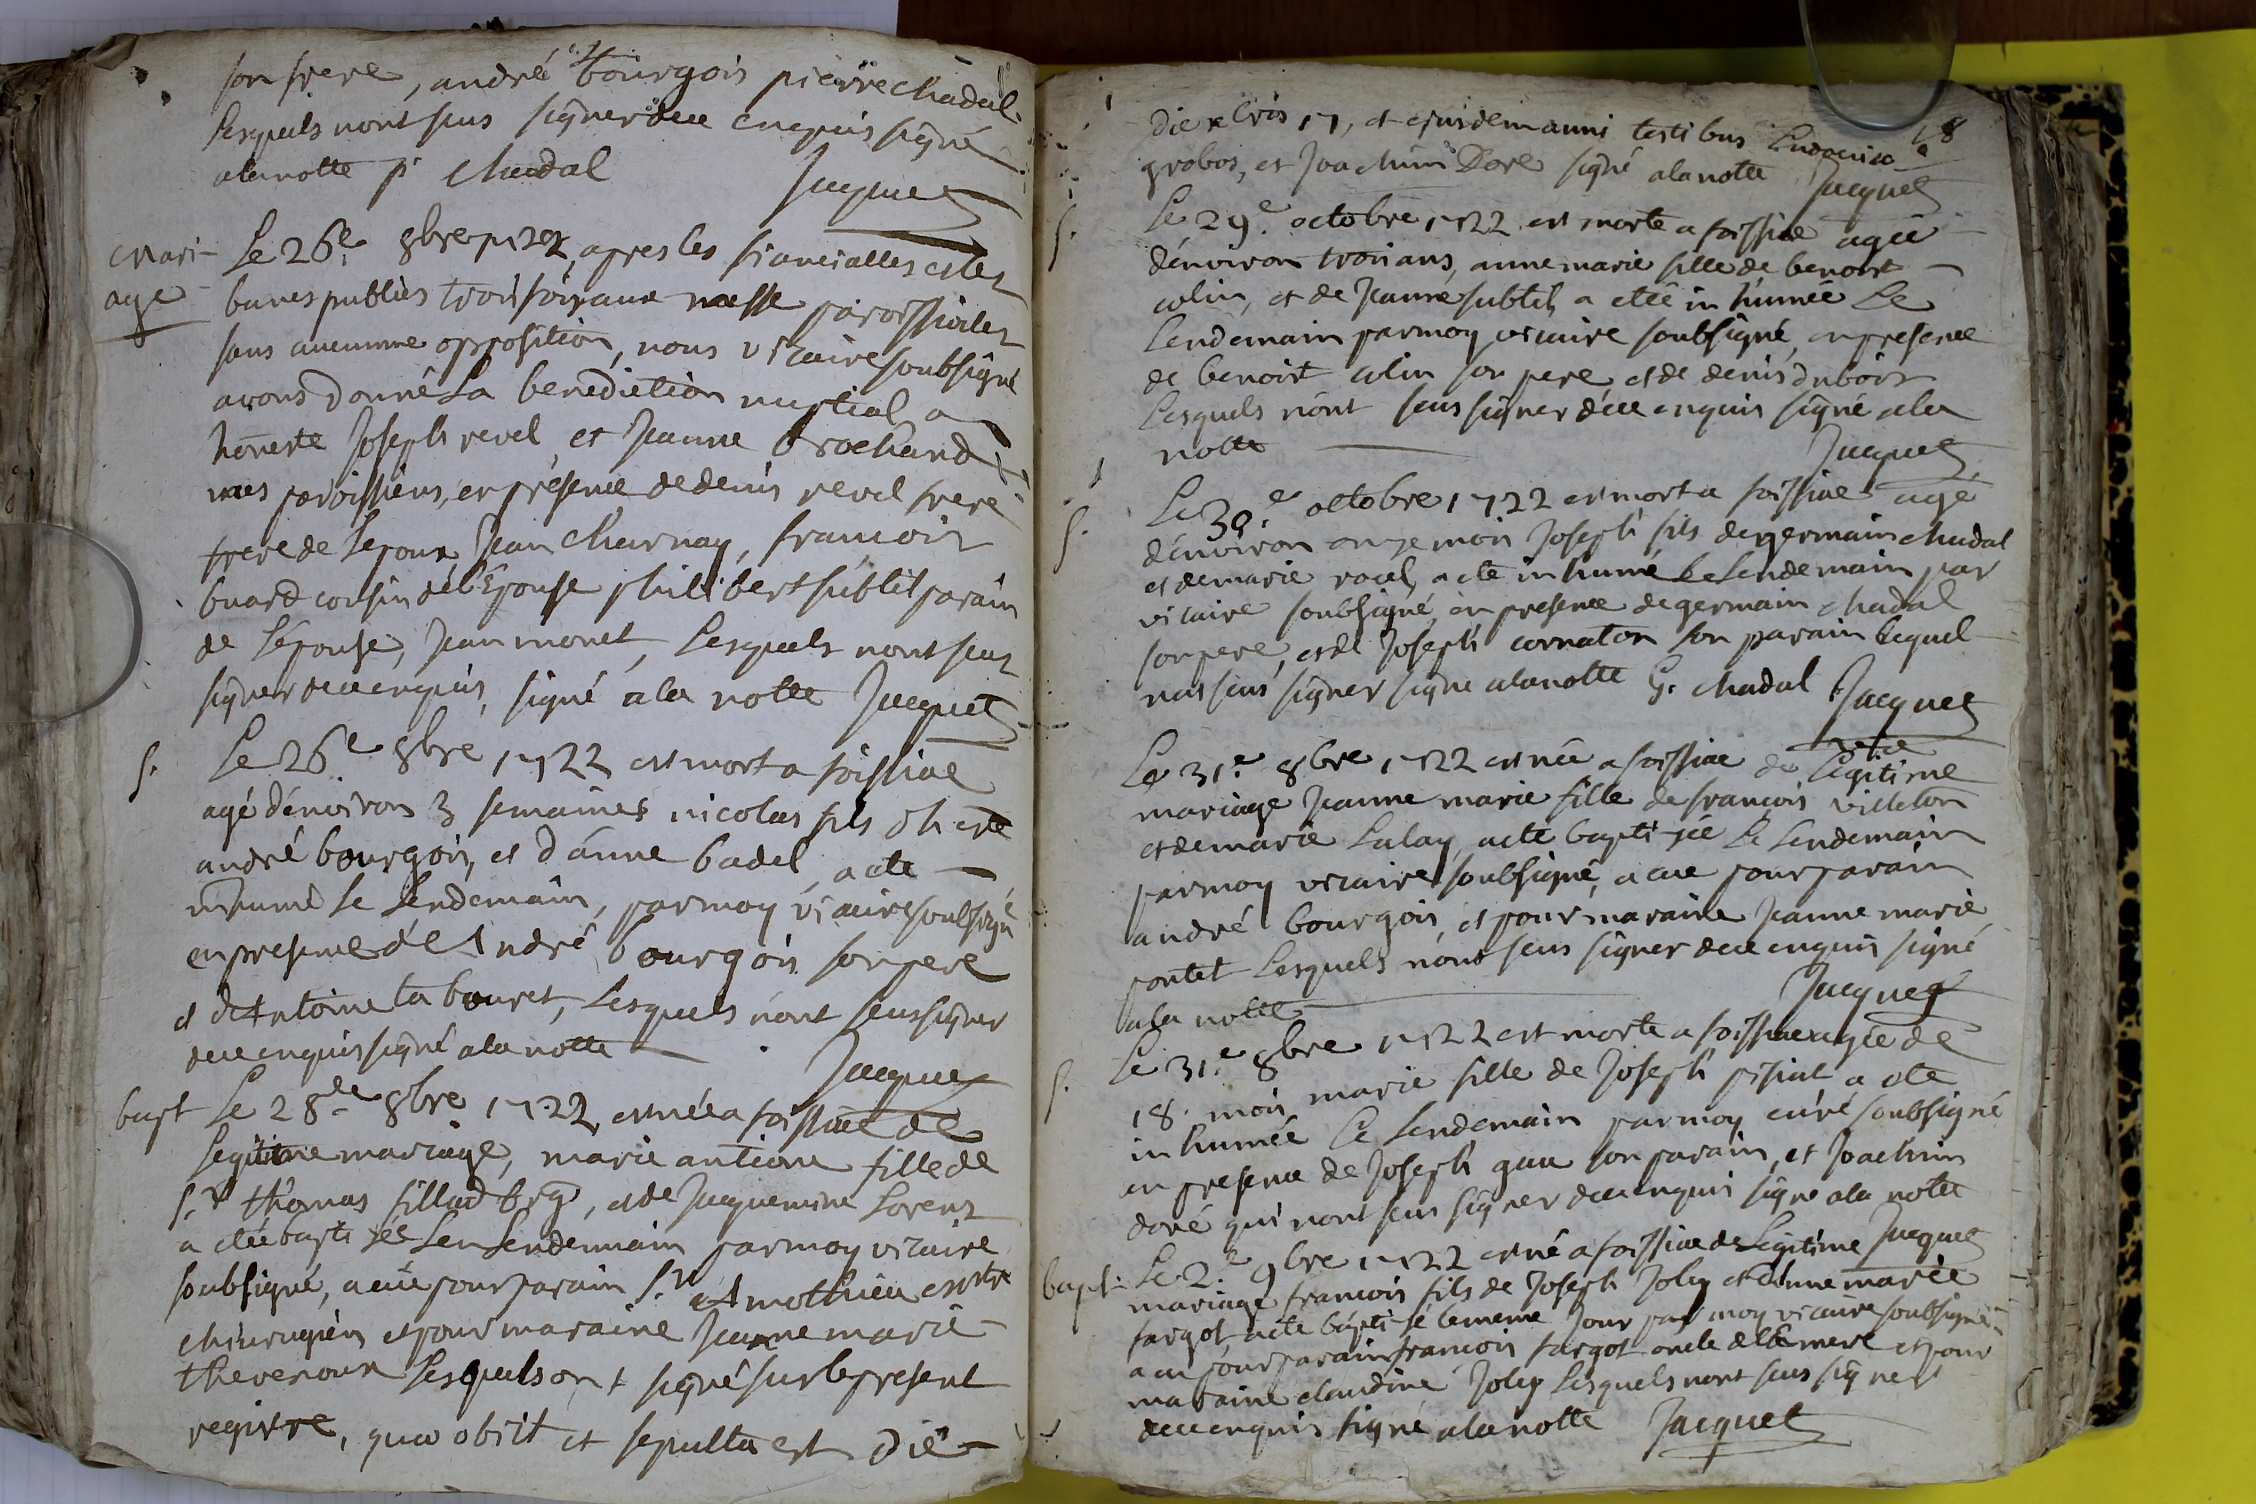 son frere, andré bourgois pierre chadal
lesquels nont seus signer de ce enquis signé
a la notte p. chadal
Jacquet
Mari-
age
Le 26e. 8bre 1722 apres les fiancialles et les
banes publiés trois fois aux messe paroissiales
sans aucunne opposition, nous vicaire soubsigné
avons donné La benediction nuptial a
honeste Joseph revel et Jeanne brochand
mes paroissiens, en présence de denis revel frere
frere de Lepoux Jean charnay, francois
buard cousin de l'Epouse philibert subtil parain
de Lépouse, Jean monet, Lesquels nont seus
signer de ce enquis, signé a la notte Jacquet
S.
Le 26e 8bre 1722 est mort a foissiac
agé d'environ 3 semaines nicolas fils d'h este
andré bourgois, et d'anne badel, a eté
inhumé le Lendemain, par moy vicaire soubsigné
en presence de André bourgois son pere
et d'Antoine tabouret, Lesquels n'ont seus signer
de ce enquis signé a la notte
Jacquet
bapt
Le 28de 8bre 1722, est née a foissiac de
Legitime mariage, marie antione fille de
S.r thomas fillad brg, et de Jacquemine Lorens
a eté baptisée Le Lendemain par moy vicaire
soubsigné, a eüe pour parain S.r mothieu
chirurgien et pour maraine Jeanne marie
thevenoux Lesquels ont signé sur le present
registre, quæ obiit et sepulta est die
68
Die xbris 17, et ejusdem anni testibus Ludovico
grobos, et Joachim Dore signé a la notte Jacquet
S.
Le 29.e octobre 1722 est morte a foissiac agée
d'environ trois ans, anne marie fille de benoist
colin, et de Jeanne subtil, a eteé in humée Le
Lendemain par moy vicaire soubsigné, en presence
de benoist colin son pere et de denis dubois
Lesquels n'ont seus signer de ce enquis signé a la
notte
Jacquet
S.
Le 30.e octobre 1722 est mort a foissiac agé
d'environ onze mois Joseph fils de germain chadal
et de marie racel, a eté in humé Le Lendemain par
vicaire soubsigné, en presence de germain chadal
son pere, et de Joseph cornaton son parain lequel
nas seus signer signe a la notte G. chadal Jacquet
Le 31.e 8bre 1722 est née a foissiac de Legitime
mariage Jeanne marie fille de francois villeton
et de marie Lalay, a eté baptisée Le Lendemain
par moy vicaire soubsigné, a eue pour parain
andré bourgois, et pour maraine Jeanne marie
pontet Lesquels n'ont seus signer de ce enquis signé
a la notte
Jacquet
S.
Le 31.e 8bre 1722 est morte a foissiac agée de
18. mois marie fille de Joseph pisiat a ete
in humée Le Lendemain par moy curé soubsigné
en presence de Joseph gau son parain, et Joachim
doré qui nont seus signer de ce enquis signe a la notte
Jacquet
bapt.
Le 2.e 9bre 1722 est né a foissiac de Legitime
mariage francois fils de Joseph Joly et d'anne marie
fargot a eté baptisé le meme Jour par moy vicaire soubsigné
a eu pour parain francois fargot oncle de la mere et pour
maraine claudine Joly Lesquels nont seus signer
de ce enquis signé a la notte Jacquet